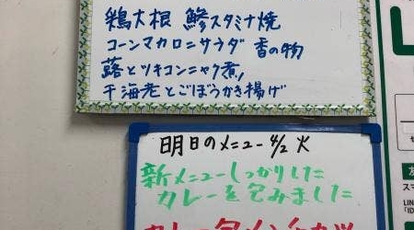 鶏大根 鯵スタミナ焼
コーンマカロニサラダ 香の物
蕗とツキコンニャク煮
干海老とごぼうかき揚げ
明日のメニュー 4/2 火
新メニューしっかりした
カレーを包みました